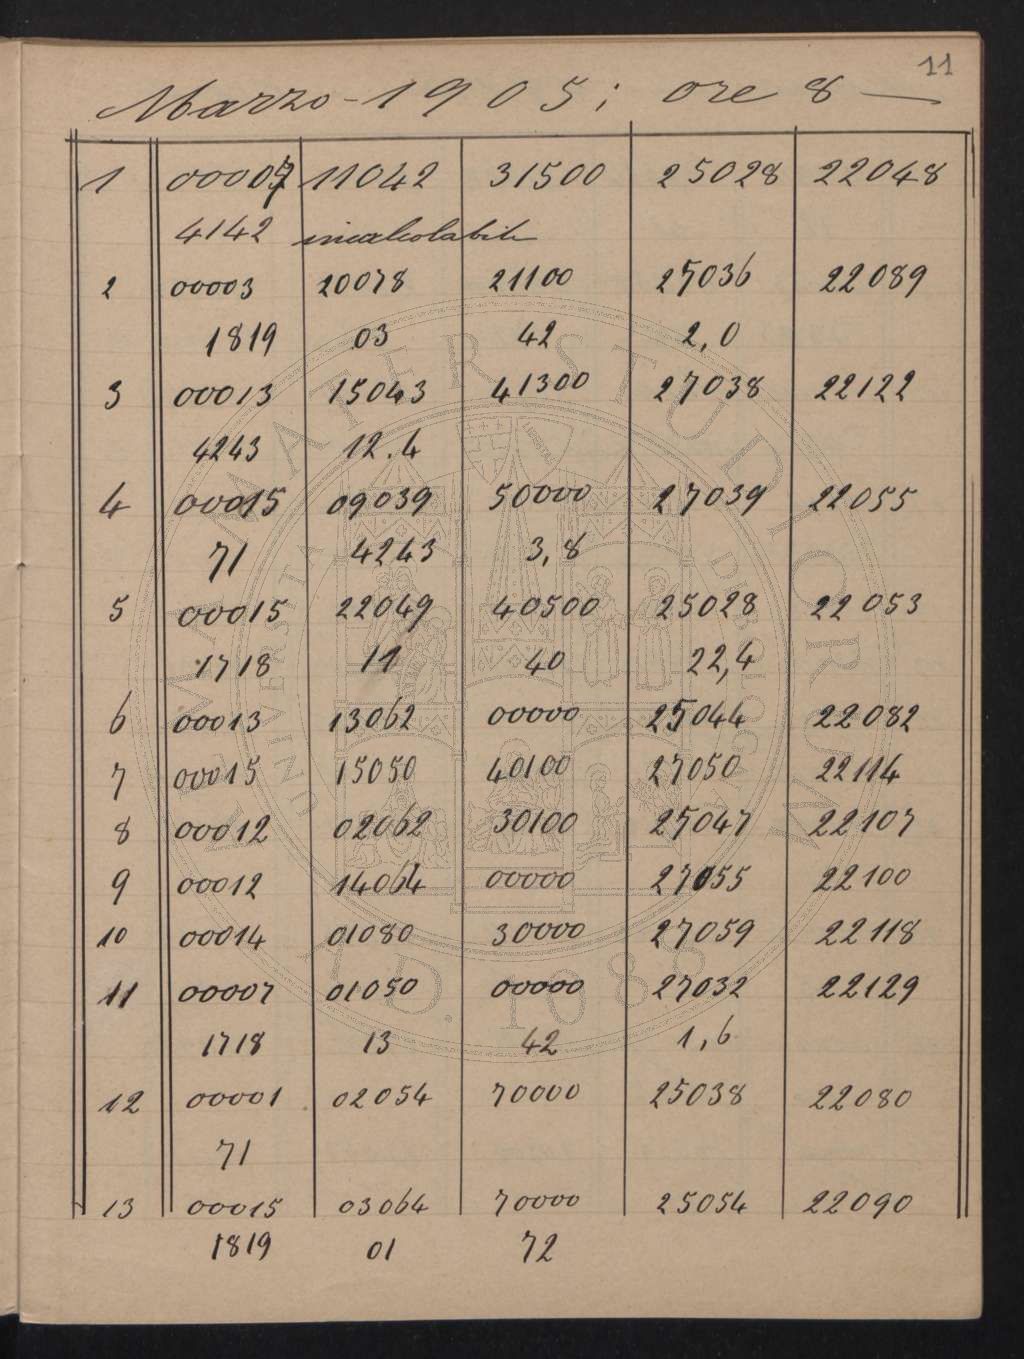 11
Marzo - 1905; ore 8
1 00007 11042 31500 25028 22048
4142 incalcolabile
2 00003 20078 21100 25036 22089
1819 03 42 2,0
3 00013 15043 41300 27038 22122
4243 12.4
4 00015 09039 50000 27039 22055
71 4243 3,8
5 00015 22049 40500 25028 22053
1718 11 40 22,4
6 00013 13062 00000 25044 22082
7 00015 15050 40100 27050 22114
8 00012 02062 30100 25047 22107
9 00012 14064 00000 27055 22100
10 00014 01080 30000 27059 22118
11 00007 01050 00000 27032 22129
1718 13 42 1,6
12 00001 02054 70000 25038 22080
71
13 00015 03064 70000 25054 22090
1819 01 72